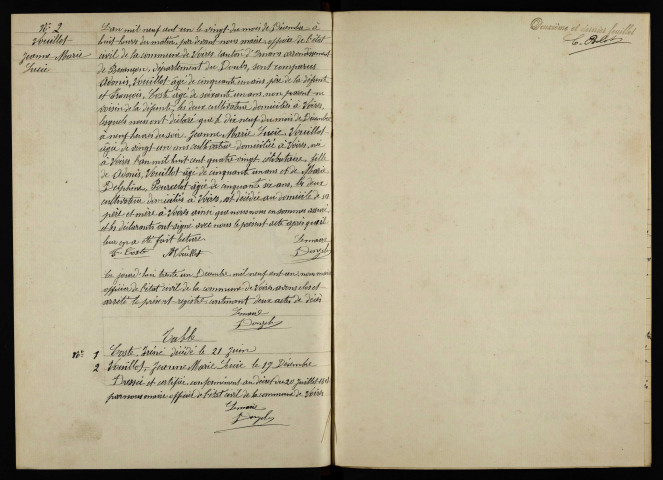 N° 2
Vveillot
Jeanne Marie
Lucie
L'an mil neuf cent un le vingt du mois de Décembre à
huit heures du matin, par devant nous maire, officier de l'état
civil de la commune de Voires, canton d'Ornans arrondissement
de Besançon, département du Doubs, sont comparus
Adonis, Vveillot âgé de cinquante un ans père de la défunte
et François, Coste âgé de soixante un ans, non parent ni
voisin de la défunte; les deux cultivateurs domiciliés à Voires,
lesquels nous ont déclaré que le dix neuf du mois de Décembre
à neuf heures du soir, Jeanne, Marie Lucie, Vveillot
âgée de vingt un ans cultivatrice domiciliée à Voires, née
à Voires l'an mil huit cent quatre vingt célibataire, fille
de Adonis, Vveillot âgé de cinquante un ans et de Marie
Delphine, Pourcelot âgée de cinquante six ans, les deux
cultivateurs domiciliés à Voires, est décédée au domicile de ses
père et mère à Voires ainsi que nous nous en sommes assuré
et les déclarants ont signé avec nous le présent acte après que lecture
leur en a été fait lecture.
Le maire
F. Coste A Vveillot
Ce jourd'hui trente un Décembre mil neuf cent un, nous maire
officier de l'état civil de la commune de Voires avons clos et
arrêté le présent registre contenant deux actes de décès
Le maire
Table
N° 1 Coste, Irénée décédé le 21 Juin
2 Vveillot, Jeanne Marie Lucie le 19 Décembre
Dressée et certifiée conformément au décret du 20 Juillet 1807
par nous maire officier de l'état civil de la commune de Voires
Le maire
Deuxième et dernier feuillet